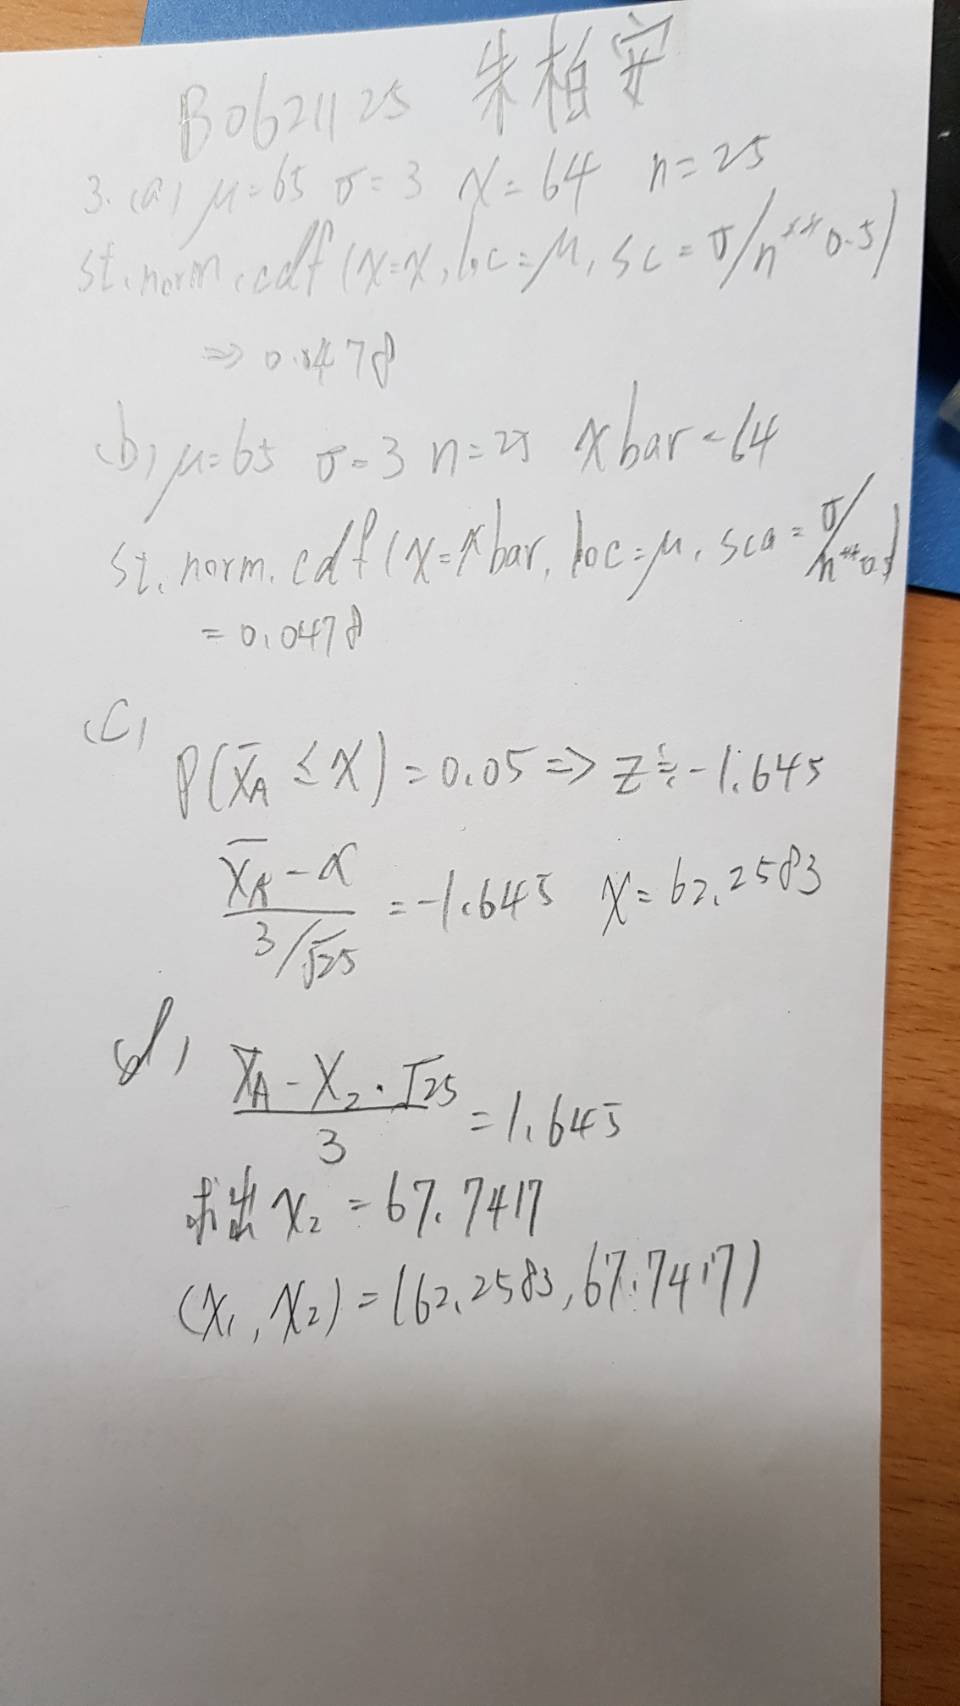 B0621125 朱柏安
3. (a) μ=65 σ=3 x=64 n=25
st.norm.cdf(x=x, loc=μ, sc=σ/n**0.5)
⇒ 0.0478
(b) μ=65 σ=3 n=25 xbar=64
st.norm.cdf(x=xbar, loc=μ, sca=σ/n**0.5)
= 0.0478
(c)
P(X̄A ≤ x) = 0.05 ⇒ Z ≒ -1.645
(X̄A - x)/(3/√25) = -1.645 x = 62.2583
d)
(X̄A - X₂ · √25)/3 = 1.645
求出 x₂ = 67.7417
(x₁, x₂) = (62.2583, 67.7417)